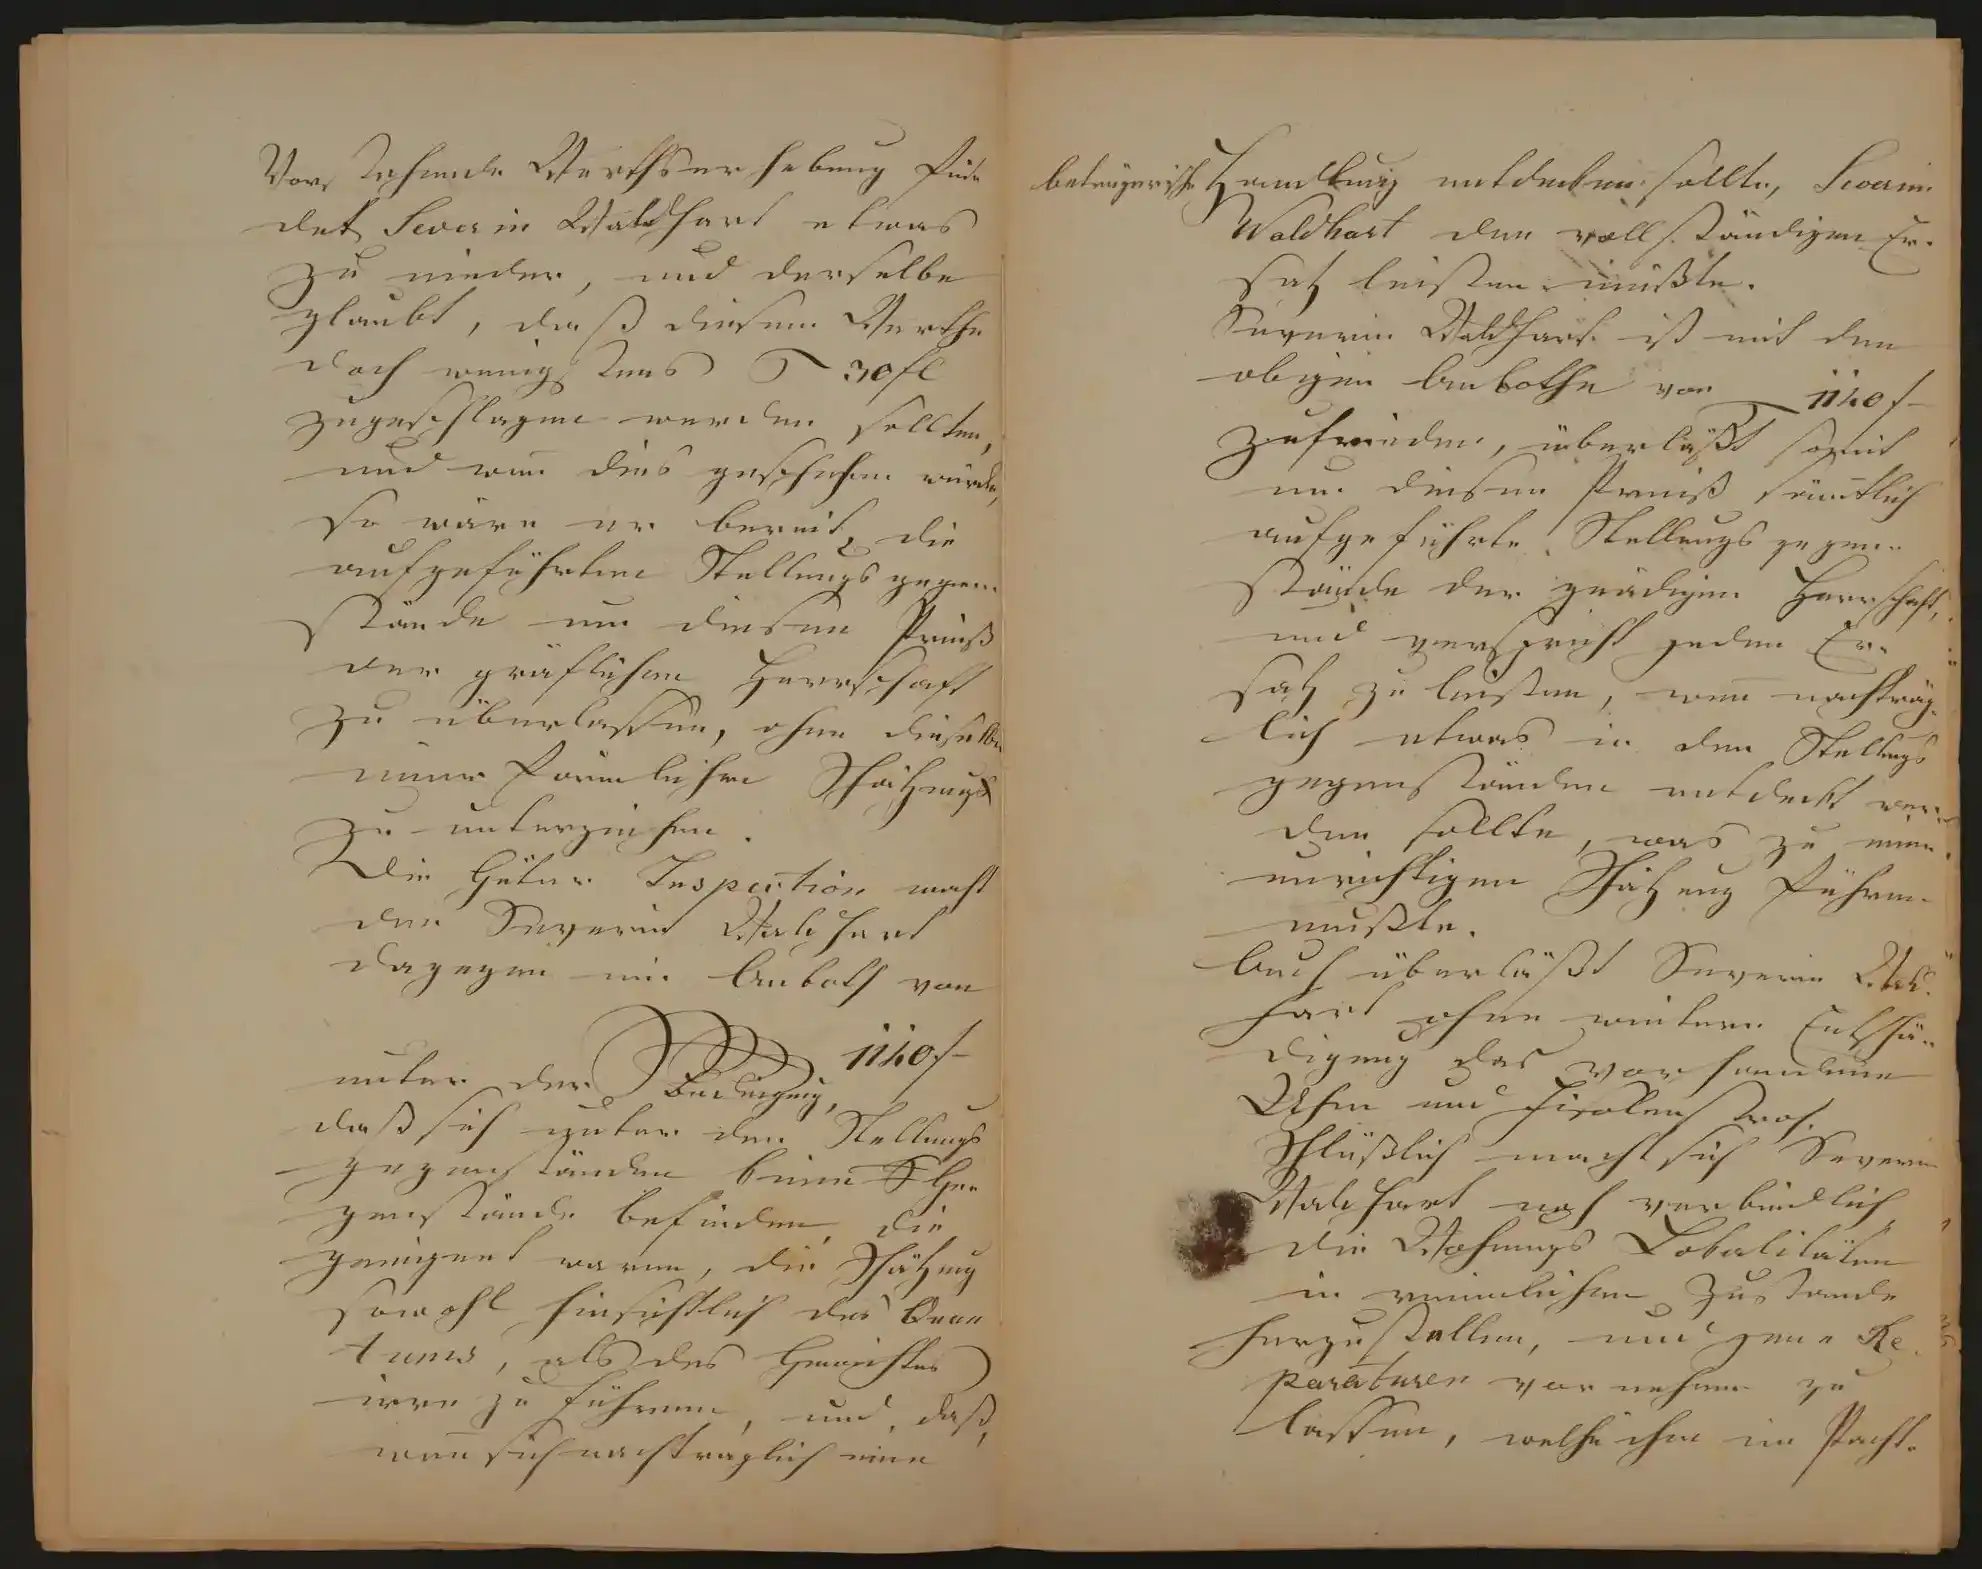 Vorstehende Werthserhebung fin
det Severin Waldhart etwas
zu nieder, und derselbe
glaubt, daß diesem Werthe
doch wenigstens 30 fl
zugeschlagen werden sollten,
und wen̅ dies geschehen würde,
so wäre er bereit, die
aufgeführten Stellungsgegen
stände um diesen Preiß
der gräflichen Herrschaft
zu überlassen, ohne dieselbe
einer förmlichen Schätzung
zu unterziehen.
Die Güter Inspection macht
den Severin Waldhart
dagegen ein Anboth von
1140 f
unter der Bedingung,
daß sich unter den Stellungs
gegenständen keine Ge
genstände befinden, die
geeignet waren, die Schätzung
sowohl hinsichtlich des Quan
tums, als des Gewichtes
irre zu führen, und, daß,
wen̅ sich nachträglich eine
betrügerische Handlung entdecken sollte, Severin
Waldhart den vollständigen Er-
satz leisten müßte.
Severin Waldhart ist mit dem
obigen Anbothe von 1140 f
zufrieden, überläßt somit
um diesen Preiß säm̅tlich
aufgeführte Stellungsgegen-
stände der gnädigen Herrschaft,
und verspricht jeden Er-
satz zu leisten, wen̅ nachträg-
lich etwas in den Stellungs
gegenständen entdeckt wer-
den sollte, was zu einer
unrichtigen Schätzung führen
mußte.
Auch überläßt Severin Wald-
hart ohne weitere Entschä-
digung das vorhandene
und Fisolenstroh.
Schlüßlich macht sich Severin
Waldhart noch verbindlich
die Wohnungs Lokalitäten
in reinlichen Zustande
herzustellen, und jene Re-
paraturen vornehmen zu
lassen, welche ihm im Pacht-